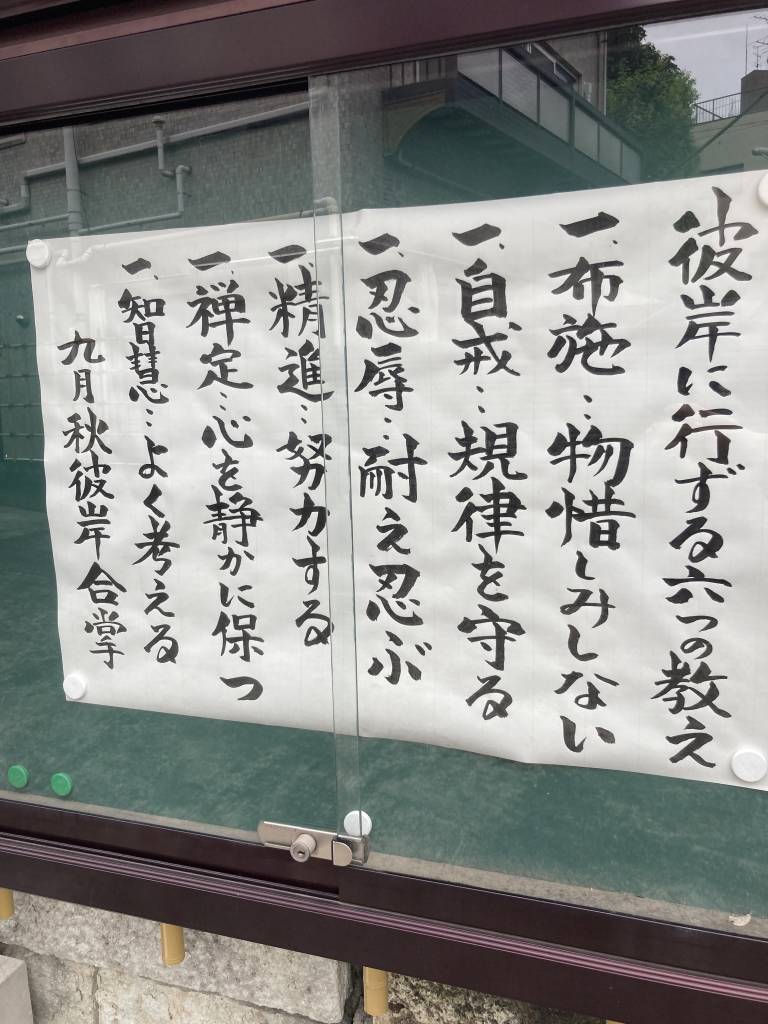 彼岸に行ずる六つの教え
一、布施…物惜しみしない
一、自戒…規律を守る
一、忍辱…耐え忍ぶ
一、精進…努力する
一、禅定…心を静かに保つ
一、知慧…よく考える
九月秋彼岸合掌